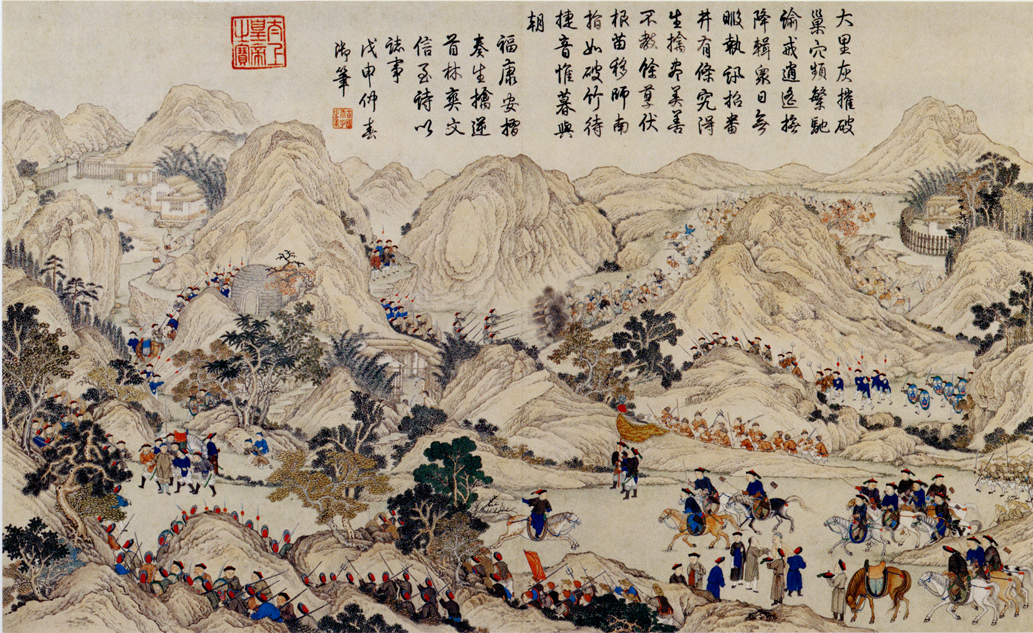 大里灰摧破
巢穴頻繁馳
諭戒逍遙撫
降輯衆日無
暇執訊招番
井有條究得
生擒盡美善
不教餘孽伏
根苗移師南
指如破竹待
捷音惟暮與
朝
福康安摺
奏生擒逆
首林爽文
信至詩以
誌事
戊申仲春
御筆
太上
皇帝
之寶